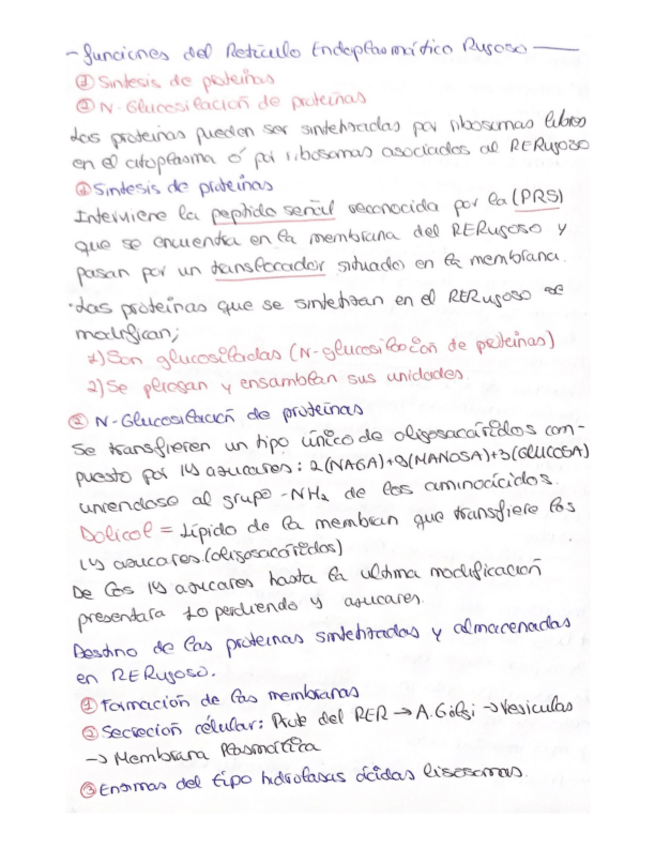 - funciones del Retículo Endoplasmático Rugoso -
① Síntesis de proteínas
② N-Glucosilación de proteínas
Las proteínas pueden ser sintetizadas por ribosomas libres
en el citoplasma ó por ribosomas asociados al RERugoso
① Síntesis de proteínas
Interviene la peptido señal reconocida por la (PRS)
que se encuentra en la membrana del RERugoso y
pasan por un translocador situado en la membrana.
·Las proteínas que se sintetizan en el RERugoso se
modifican;
1) Son glucosiladas (N-glucosilación de proteínas)
2) Se pliegan y ensamblan sus unidades.
② N-Glucosilación de proteínas
Se transfieren un tipo único de oligosacáridos com-
puesto por 14 azucares: 2(NAGA)+9(MANOSA)+3(GLUCOSA)
uniendose al grupo -NH₂ de los aminoácidos.
Dolicol = Lípido de la membran que transfiere los
14 azucares.(oligosacáridos)
De los 14 azucares hasta la ultima modificación
presentara 10 perdiendo 4 azucares.
Destino de las proteínas sintetizadas y almacenadas
en RERugoso.
① Formación de las membranas
② Secreción célular: Prote del RER → A.Golgi → Vesículas
→ Membrana Plasmática
③ Enzimas del tipo hidrolasas ácidas lisosomas.